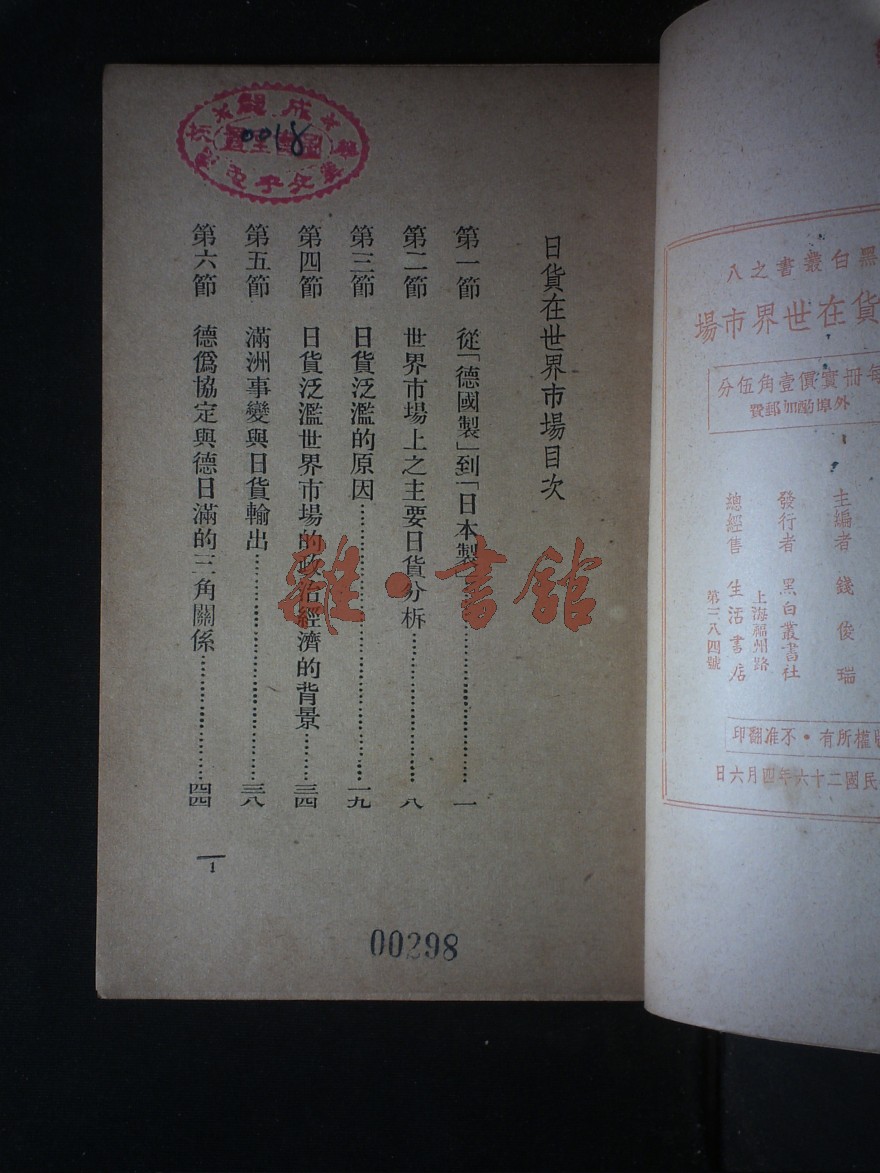 黑白叢書之八
貨在世界市場
每冊實價壹角伍分
外埠酌加郵費
主編者 錢俊瑞
發行者 黑白叢書社
上海福州路
總經售 生活書店
第三八四號
版權所有・不准翻印
民國二十六年四月六日
日貨在世界市場目次
第一節 從「德國製」到「日本製」……一
第二節 世界市場上之主要日貨分析……八
第三節 日貨泛濫的原因……一九
第四節 日貨泛濫世界市場的政治經濟的背景……三四
第五節 滿洲事變與日貨輸出……三八
第六節 德僞協定與德日滿的三角關係……四四
1
0018
00298
雜・書館